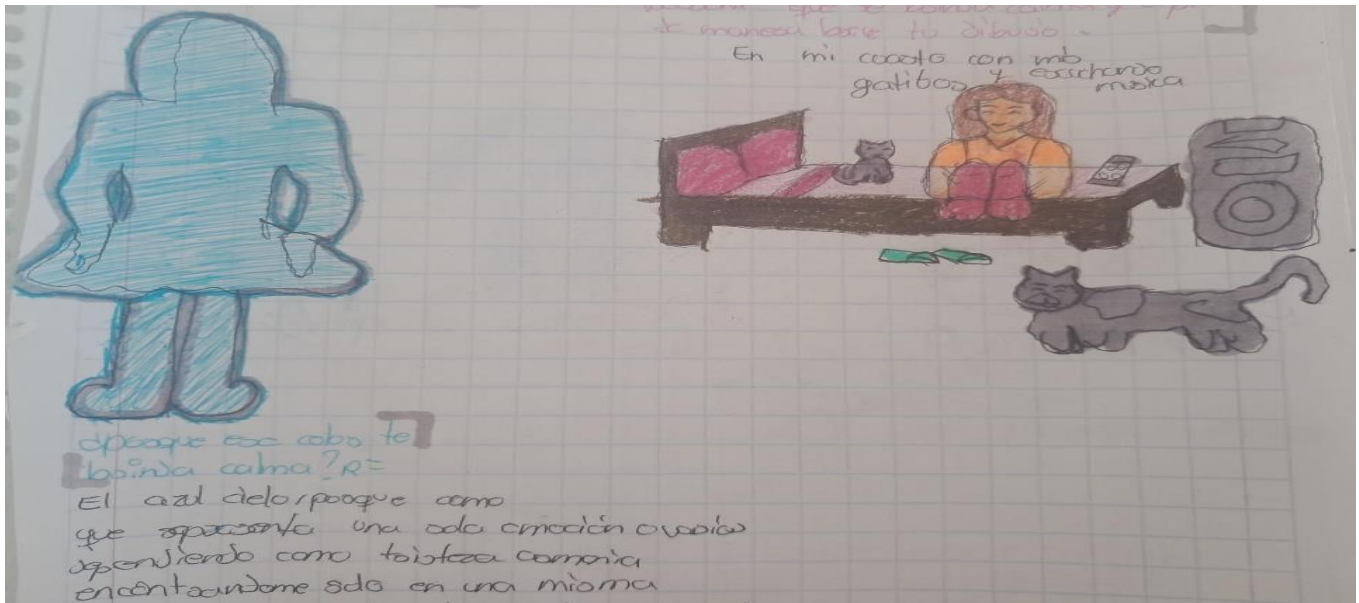 que te brinda calma y
de manera libre tu dibujo.
En mi cuarto con mis
gatitos y escuchando
musica
¿porque ese color te
brinda calma? R=
El azul cielo, porque como
que representa una sola emoción o varias
dependiendo como tristeza
encontrandome solo en una misma